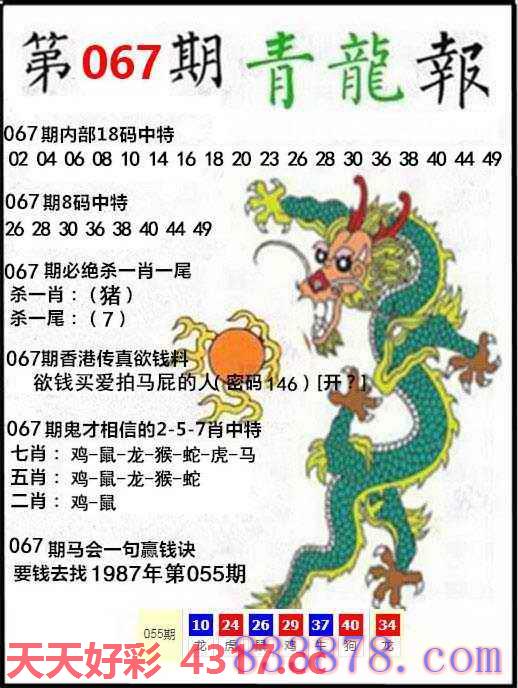 第067期青龍報
067期内部18码中特
02 04 06 08 10 14 16 18 20 23 26 28 30 36 38 40 44 49
067期8码中特
26 28 30 36 38 40 44 49
067期必绝杀一肖一尾
杀一肖：（猪）
杀一尾：（7）
067期香港传真欲钱料
欲钱买爱拍马屁的人（密码146）[开？]
067期鬼才相信的2-5-7肖中特
七肖：鸡-鼠-龙-猴-蛇-虎-马
五肖：鸡-鼠-龙-猴-蛇
二肖：鸡-鼠
067期马会一句赢钱诀
要钱去找1987年第055期
055期 10 24 26 29 37 40 34
龙 虎 鼠 鸡 牛 狗 龙
天天好彩 4317.cc
838878.com